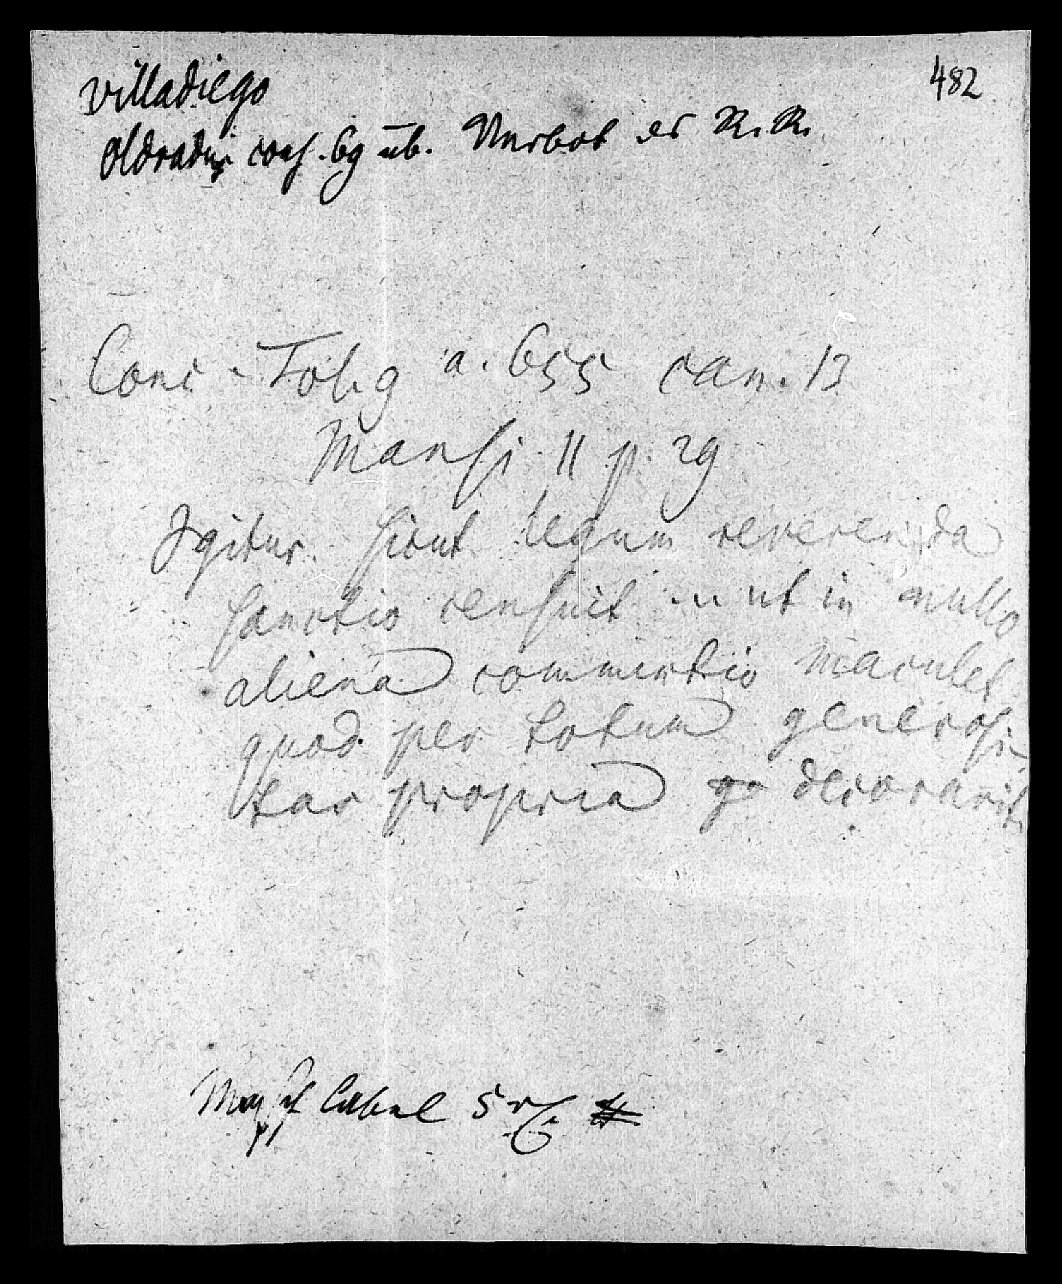 Villadiego
482
Oldradus cons. 69 üb. Verbot es R. R.
Conc. Tol. 9 a. 655 can. 13
Mansi 11 p. 29
Igitur sicut legum reverenda
sanctio censuit ... ut in nullo
aliena commertio maculet
quod per totum generosi-
tas propria decoravit
5